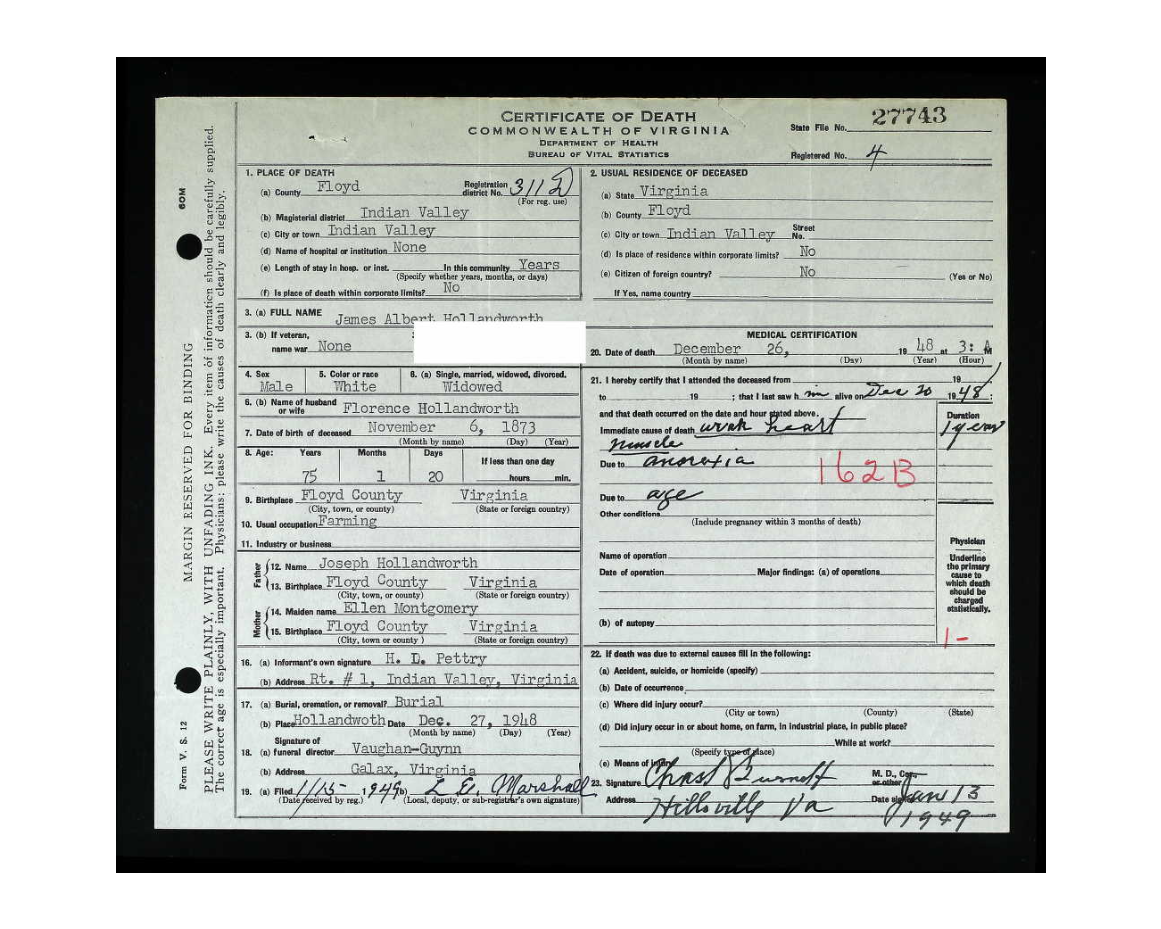 CERTIFICATE OF DEATH
COMMONWEALTH OF VIRGINIA
DEPARTMENT OF HEALTH
BUREAU OF VITAL STATISTICS
State File No. 27743
Registered No. 4
60M
MARGIN RESERVED FOR BINDING
Form V. S. 12
PLEASE WRITE PLAINLY, WITH UNFADING INK. Every item of information should be carefully supplied.
The correct age is especially important. Physicians: please write the causes of death clearly and legibly.
1. PLACE OF DEATH
(a) County Floyd Registration district No. 311D
(For reg. use)
(b) Magisterial district Indian Valley
(c) City or town Indian Valley
(d) Name of hospital or institution None
(e) Length of stay in hosp. or inst. In this community Years
(Specify whether years, months, or days)
(f) Is place of death within corporate limits? No
2. USUAL RESIDENCE OF DECEASED
(a) State Virginia
(b) County Floyd
(c) City or town Indian Valley Street No.
(d) Is place of residence within corporate limits? No
(e) Citizen of foreign country? No (Yes or No)
If Yes, name country
3. (a) FULL NAME James Albert Hollandworth
3. (b) If veteran,
name war None
4. Sex Male
5. Color or race White
6. (a) Single, married, widowed, divorced. Widowed
6. (b) Name of husband or wife Florence Hollandworth
7. Date of birth of deceased November 6, 1873
(Month by name) (Day) (Year)
8. Age: Years Months Days If less than one day
75 1 20 hours min.
9. Birthplace Floyd County Virginia
(City, town, or county) (State or foreign country)
10. Usual occupation Farming
11. Industry or business
Father
12. Name Joseph Hollandworth
13. Birthplace Floyd County Virginia
(City, town, or county) (State or foreign country)
Mother
14. Maiden name Ellen Montgomery
15. Birthplace Floyd County Virginia
(City, town or county ) (State or foreign country)
16. (a) Informant's own signature H. D. Pettry
(b) Address Rt. # 1, Indian Valley, Virginia
17. (a) Burial, cremation, or removal? Burial
(b) Place Hollandwoth Date Dec. 27, 1948
(Month by name) (Day) (Year)
Signature of
18. (a) funeral director Vaughan-Guynn
(b) Address Galax, Virginia
19. (a) Filed 1/15- 1949 (b) Marshall
(Date received by reg.) (Local, deputy, or sub-registrar's own signature)
MEDICAL CERTIFICATION
20. Date of death December 26, 19 48 at 3: A M
(Month by name) (Day) (Year) (Hour)
21. I hereby certify that I attended the deceased from 19
to 19 ; that I last saw h im alive on Dec 20 1948;
and that death occurred on the date and hour stated above.
Duration
Immediate cause of death weak heart 1 year
muscle
Due to anorexia
162B
Due to age
Other conditions
(Include pregnancy within 3 months of death)
Name of operation
Date of operation Major findings: (a) of operations
(b) of autopsy
Physician
Underline the primary cause to which death should be charged statistically.
1-
22. If death was due to external causes fill in the following:
(a) Accident, suicide, or homicide (specify)
(b) Date of occurrence
(c) Where did injury occur?
(City or town) (County) (State)
(d) Did injury occur in or about home, on farm, in industrial place, in public place?
While at work?
(Specify type of place)
(e) Means of injury
23. Signature M. D., or other
Address Hillsville Va Date signed Jan 13
1949